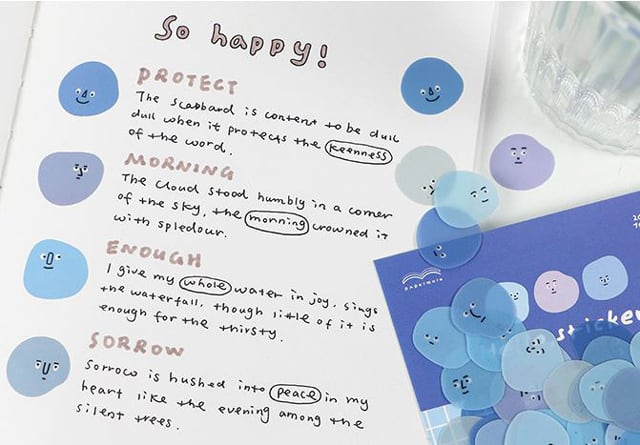 So happy!
PROTECT
The scabbard is content to be dull
dull when it protects the keenness
of the word.
MORNING
The cloud stood humbly in a corner
of the sky, the morning crowned it
with spledour.
ENOUGH
I give my whole water in joy, sings
the waterfall, though little of it is
enough for the thirsty.
SORROW
Sorrow is hushed into peace in my
heart like the evening among the
silent trees.
papermore
sticker